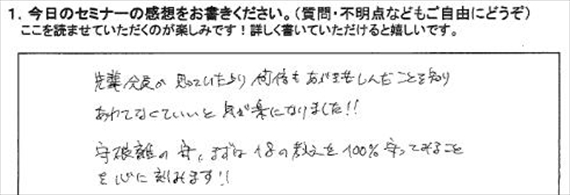 1. 今日のセミナーの感想をお書きください。(質問・不明点などもご自由にどうぞ)
ここを読ませていただくのが楽しみです！詳しく書いていただけると嬉しいです。
先輩会員の 思っていたより 何倍も あがき苦しんだことを知り
あわてなくていいと 気が楽になりました!!
守破離の守、まずは の教えを100%守ってみること
を心に刻みます!!